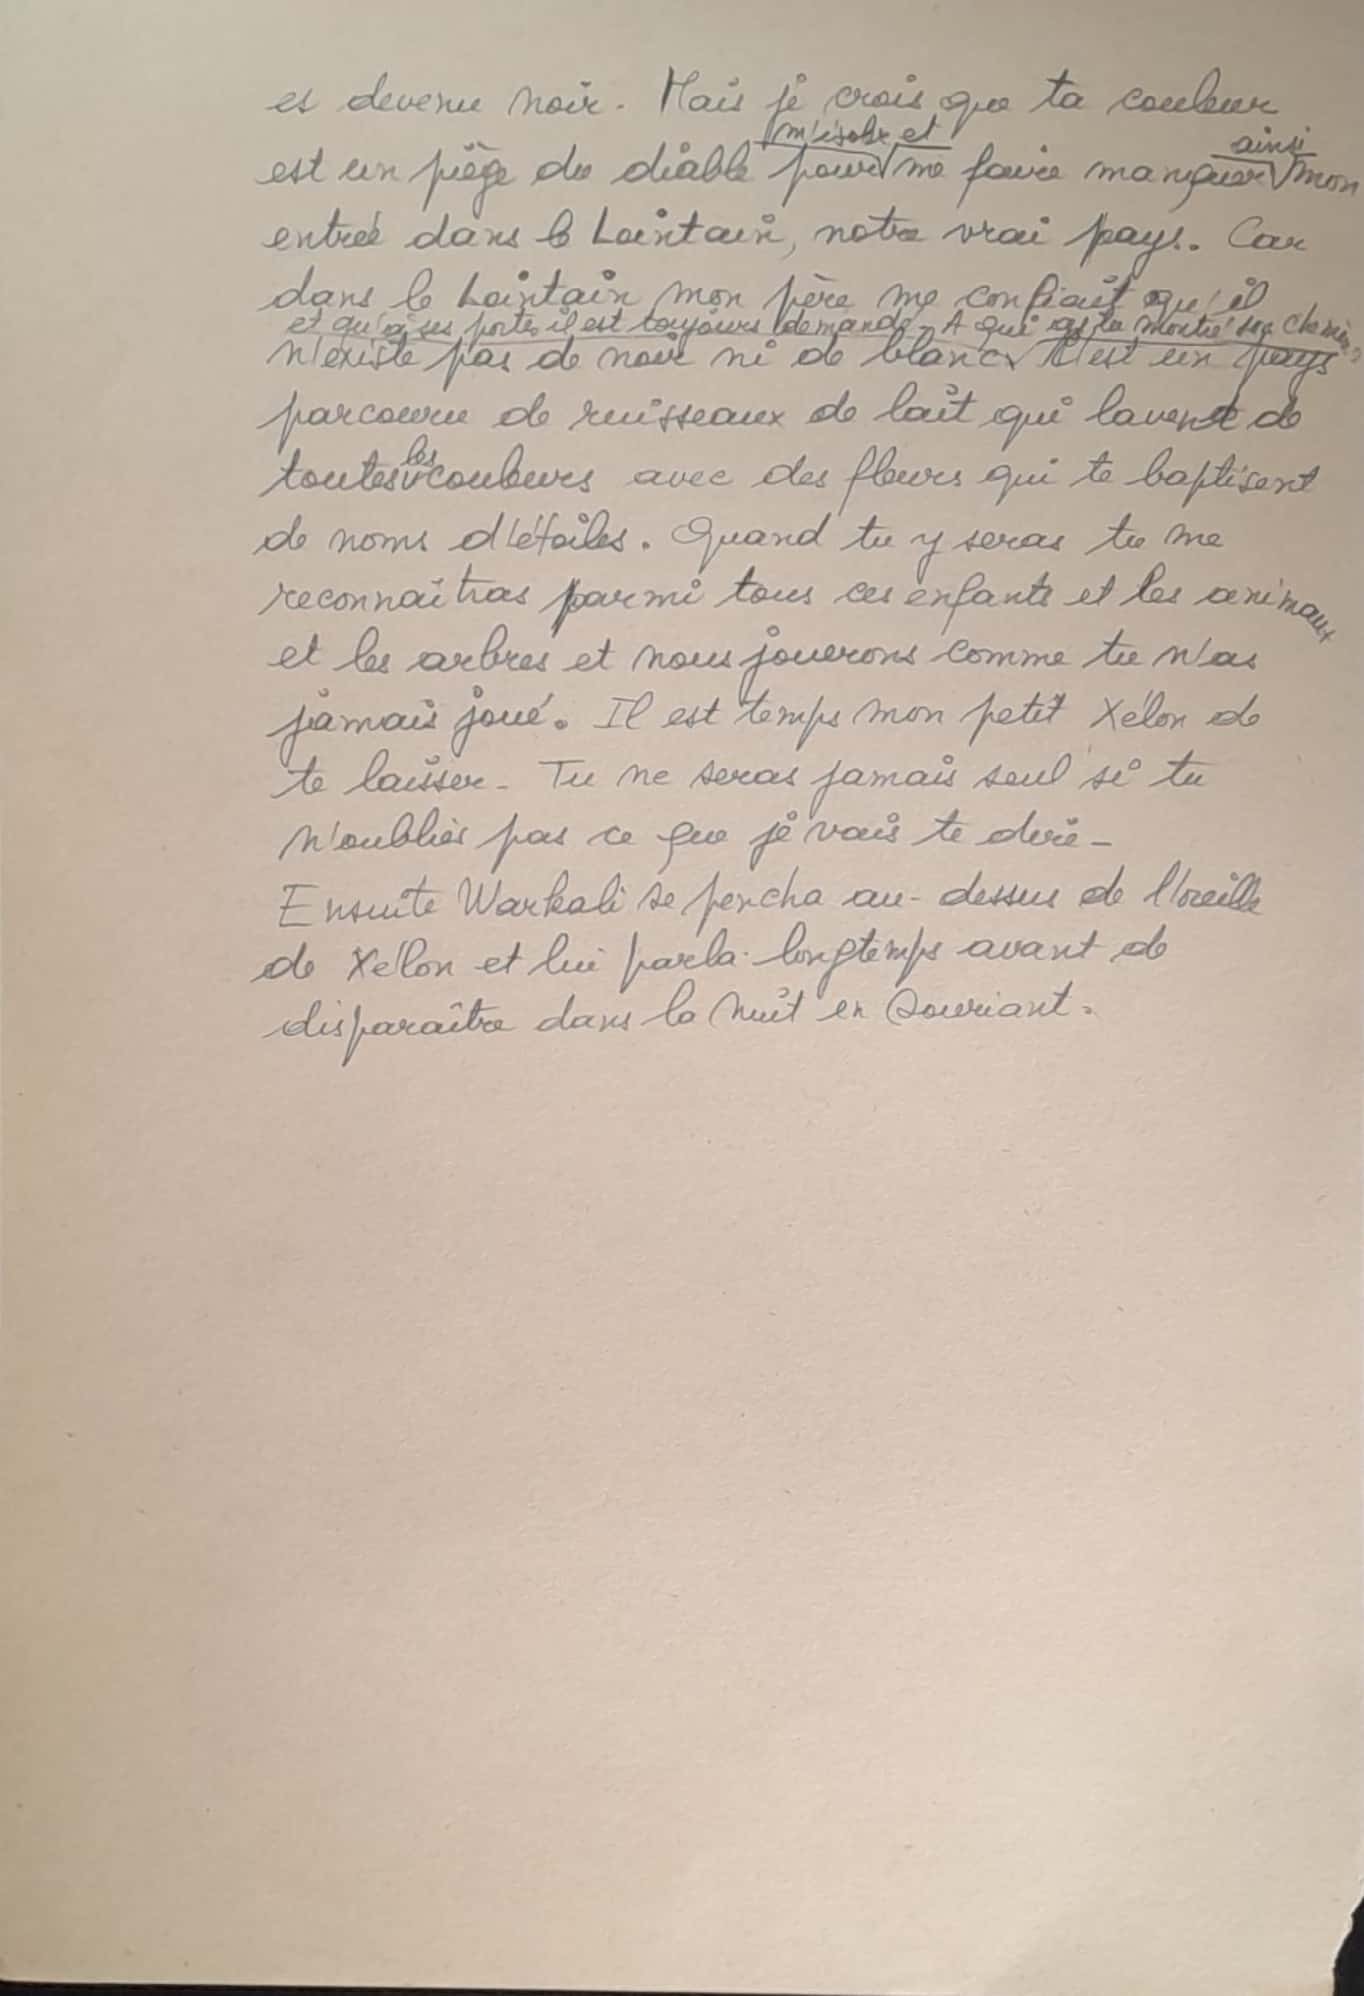 es devenu noir. Mais je crois que ta couleur
m'isoler et ainsi
est un piège du diable pour me faire manquer mon
entrée dans le Lointain, notre vrai pays. Car
dans le Lointain mon père me confiait qu'il
et qu'à ses portes il est toujours demandé - A qui as tu montré son chemin ?
n'existe pas de noir ni de blanc. C'est un pays
parcouru de ruisseaux de lait qui lavent de
les
toutes couleurs avec des fleurs qui te baptisent
de noms d'étoiles. Quand tu y seras tu me
reconnaîtras parmi tous ces enfants et les animaux
et les arbres et nous jouerons comme tu n'as
jamais joué. Il est temps mon petit Xélon de
te laisser - Tu ne seras jamais seul si tu
n'oublies pas ce que je vais te dire -
Ensuite Warkali se pencha au-dessus de l'oreille
de Xélon et lui parla longtemps avant de
disparaître dans la nuit en souriant.